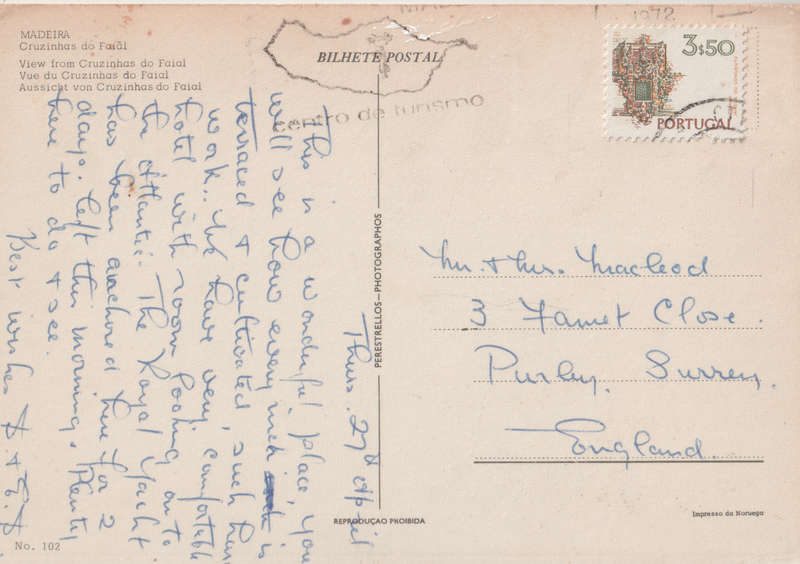 MADEIRA
Cruzinhas do Faial
View from Cruzinhas do Faial
Vue du Cruzinhas do Faial
Aussicht von Cruzinhas do Faial
BILHETE POSTAL
centro de turismo
1972
3$50
PORTUGAL
Thurs. 27th April
This is a wonderful place, you
will see how every inch is
terraced & cultivated, such hard
work. We have very comfortable
hotel with room looking on to
the Atlantic. The Royal Yacht
has been anchored here for 2
days. Left this morning. Plenty
here to do & see.
Best wishes
PERESTRELLOS—PHOTOGRAPHOS
Mr. & Mrs. Macleod
3 Famet Close.
Purley. Surrey.
England.
REPRODUÇÃO PROIBIDA
Impresso da Noruega
No. 102